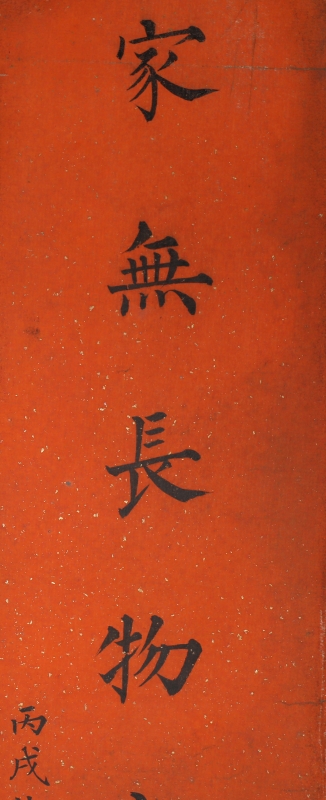 家無長物
丙戌